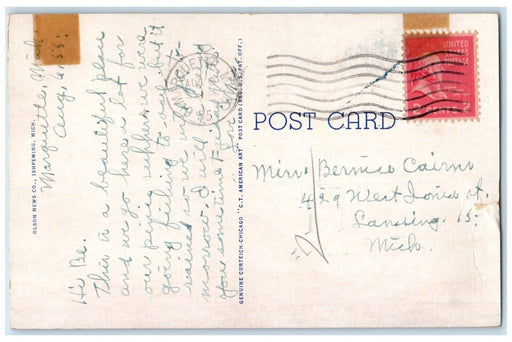 Marquette, Mich.
Aug, 6, 53.
Hi Be.
This is a beautiful place
and we go here a lot for
our picnic suppers. we were
going fishing to day but it
rained so we will go to-
morrow. I will
you sometime
OLSON NEWS CO., ISHPEMING, MICH.
GENUINE CURTEICH-CHICAGO "C.T. AMERICAN ART" POST CARD (REG. U. S. PAT. OFF.)
POST CARD
UNITED
2
Miss Bernice Cairns
429 West Ionia st.
Lansing. 15.
Mich.